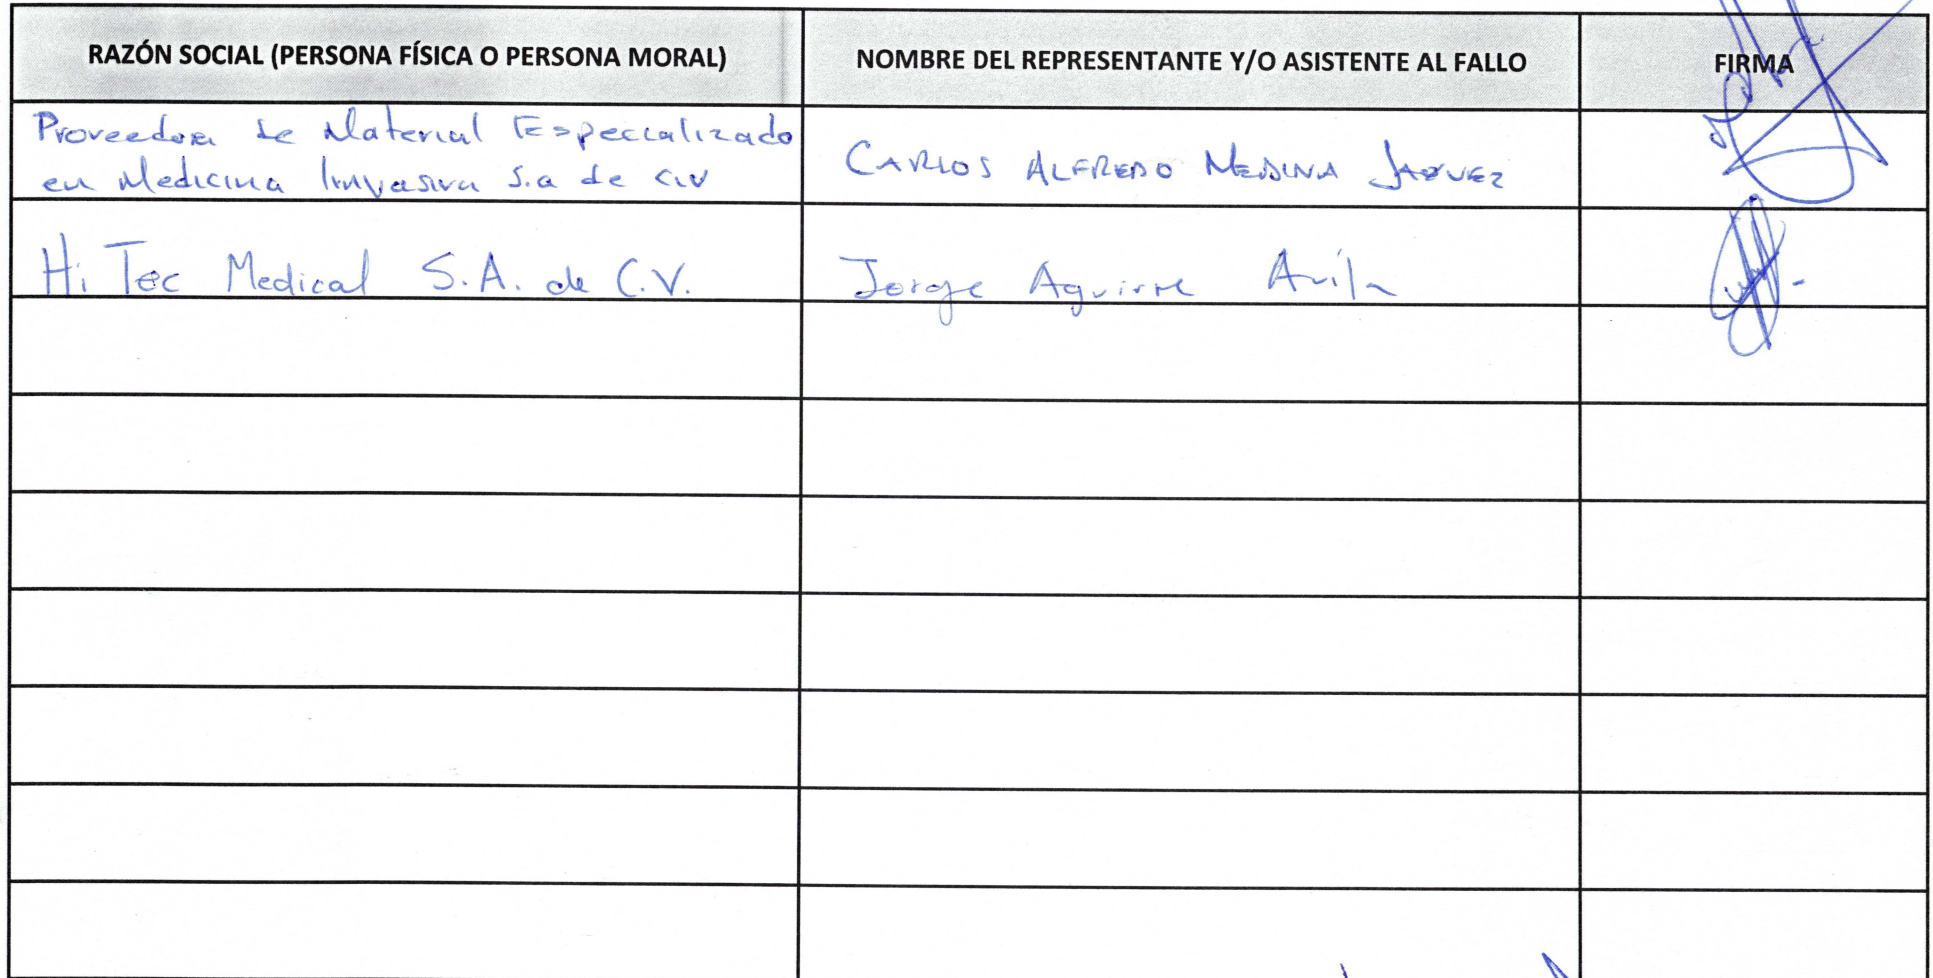 RAZÓN SOCIAL (PERSONA FÍSICA O PERSONA MORAL) NOMBRE DEL REPRESENTANTE Y/O ASISTENTE AL FALLO FIRMA
Proveedora de Material Especializado
en Medicina Invasiva S.a de C.V
CARLOS ALFREDO MEDINA JAQUEZ
Hi Tec Medical S.A. de C.V. Jorge Aguirre Avila